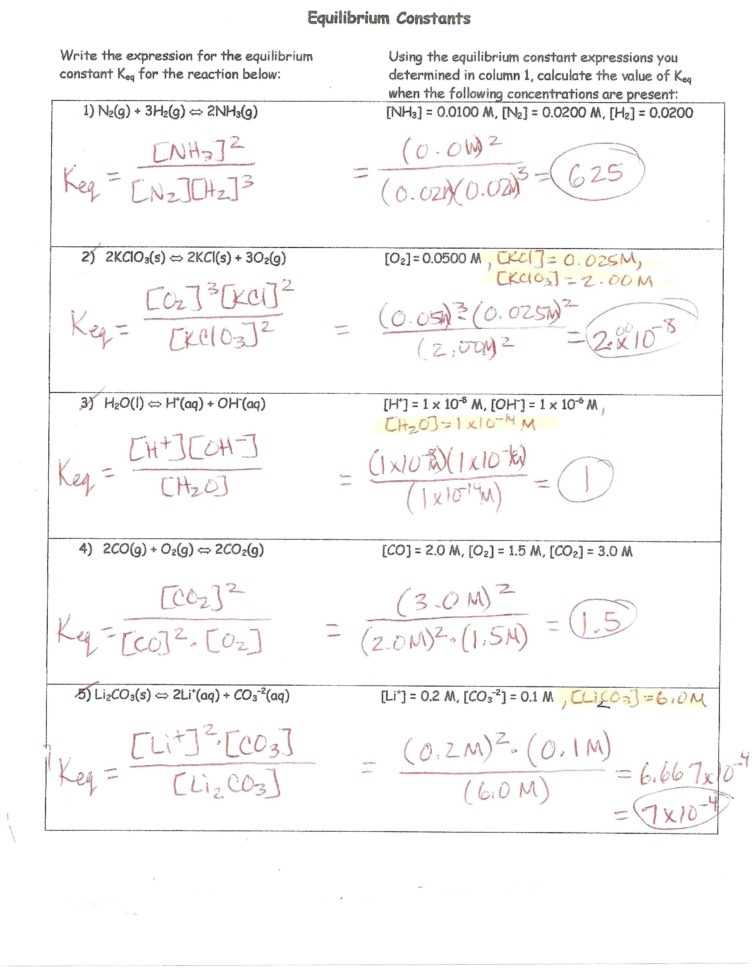 Equilibrium Constants
Write the expression for the equilibrium
constant Keq for the reaction below:
Using the equilibrium constant expressions you
determined in column 1, calculate the value of Keq
when the following concentrations are present:
1) N₂(g) + 3H₂(g) ⇔ 2NH₃(g)
[NH₃] = 0.0100 M, [N₂] = 0.0200 M, [H₂] = 0.0200
Keq = [NH₃]² / [N₂][H₂]³
= (0.01M)² / (0.02M)(0.02M)³ = 625
2) 2KClO₃(s) ⇔ 2KCl(s) + 3O₂(g)
[O₂] = 0.0500 M, [KCl] = 0.025M,
[KClO₃] = 2.00 M
Keq = [O₂]³[KCl]² / [KClO₃]²
= (0.05M)³(0.025M)² / (2.00M)² = 2.00x10⁻⁸
3) H₂O(l) ⇔ H⁺(aq) + OH⁻(aq)
[H⁺] = 1 x 10⁻⁸ M, [OH⁻] = 1 x 10⁻⁶ M,
[H₂O] = 1x10⁻¹⁴ M
Keq = [H⁺][OH⁻] / [H₂O]
= (1x10⁻⁸M)(1x10⁻⁶M) / (1x10⁻¹⁴M) = 1
4) 2CO(g) + O₂(g) ⇔ 2CO₂(g)
[CO] = 2.0 M, [O₂] = 1.5 M, [CO₂] = 3.0 M
Keq = [CO₂]² / [CO]².[O₂]
= (3.0 M)² / (2.0M)².(1.5M) = 1.5
5) Li₂CO₃(s) ⇔ 2Li⁺(aq) + CO₃⁻²(aq)
[Li⁺] = 0.2 M, [CO₃⁻²] = 0.1 M, [Li₂CO₃] = 6.0M
Keq = [Li⁺]².[CO₃] / [Li₂CO₃]
= (0.2M)².(0.1M) / (6.0M) = 6.667x10⁻⁴
= 7x10⁻⁴